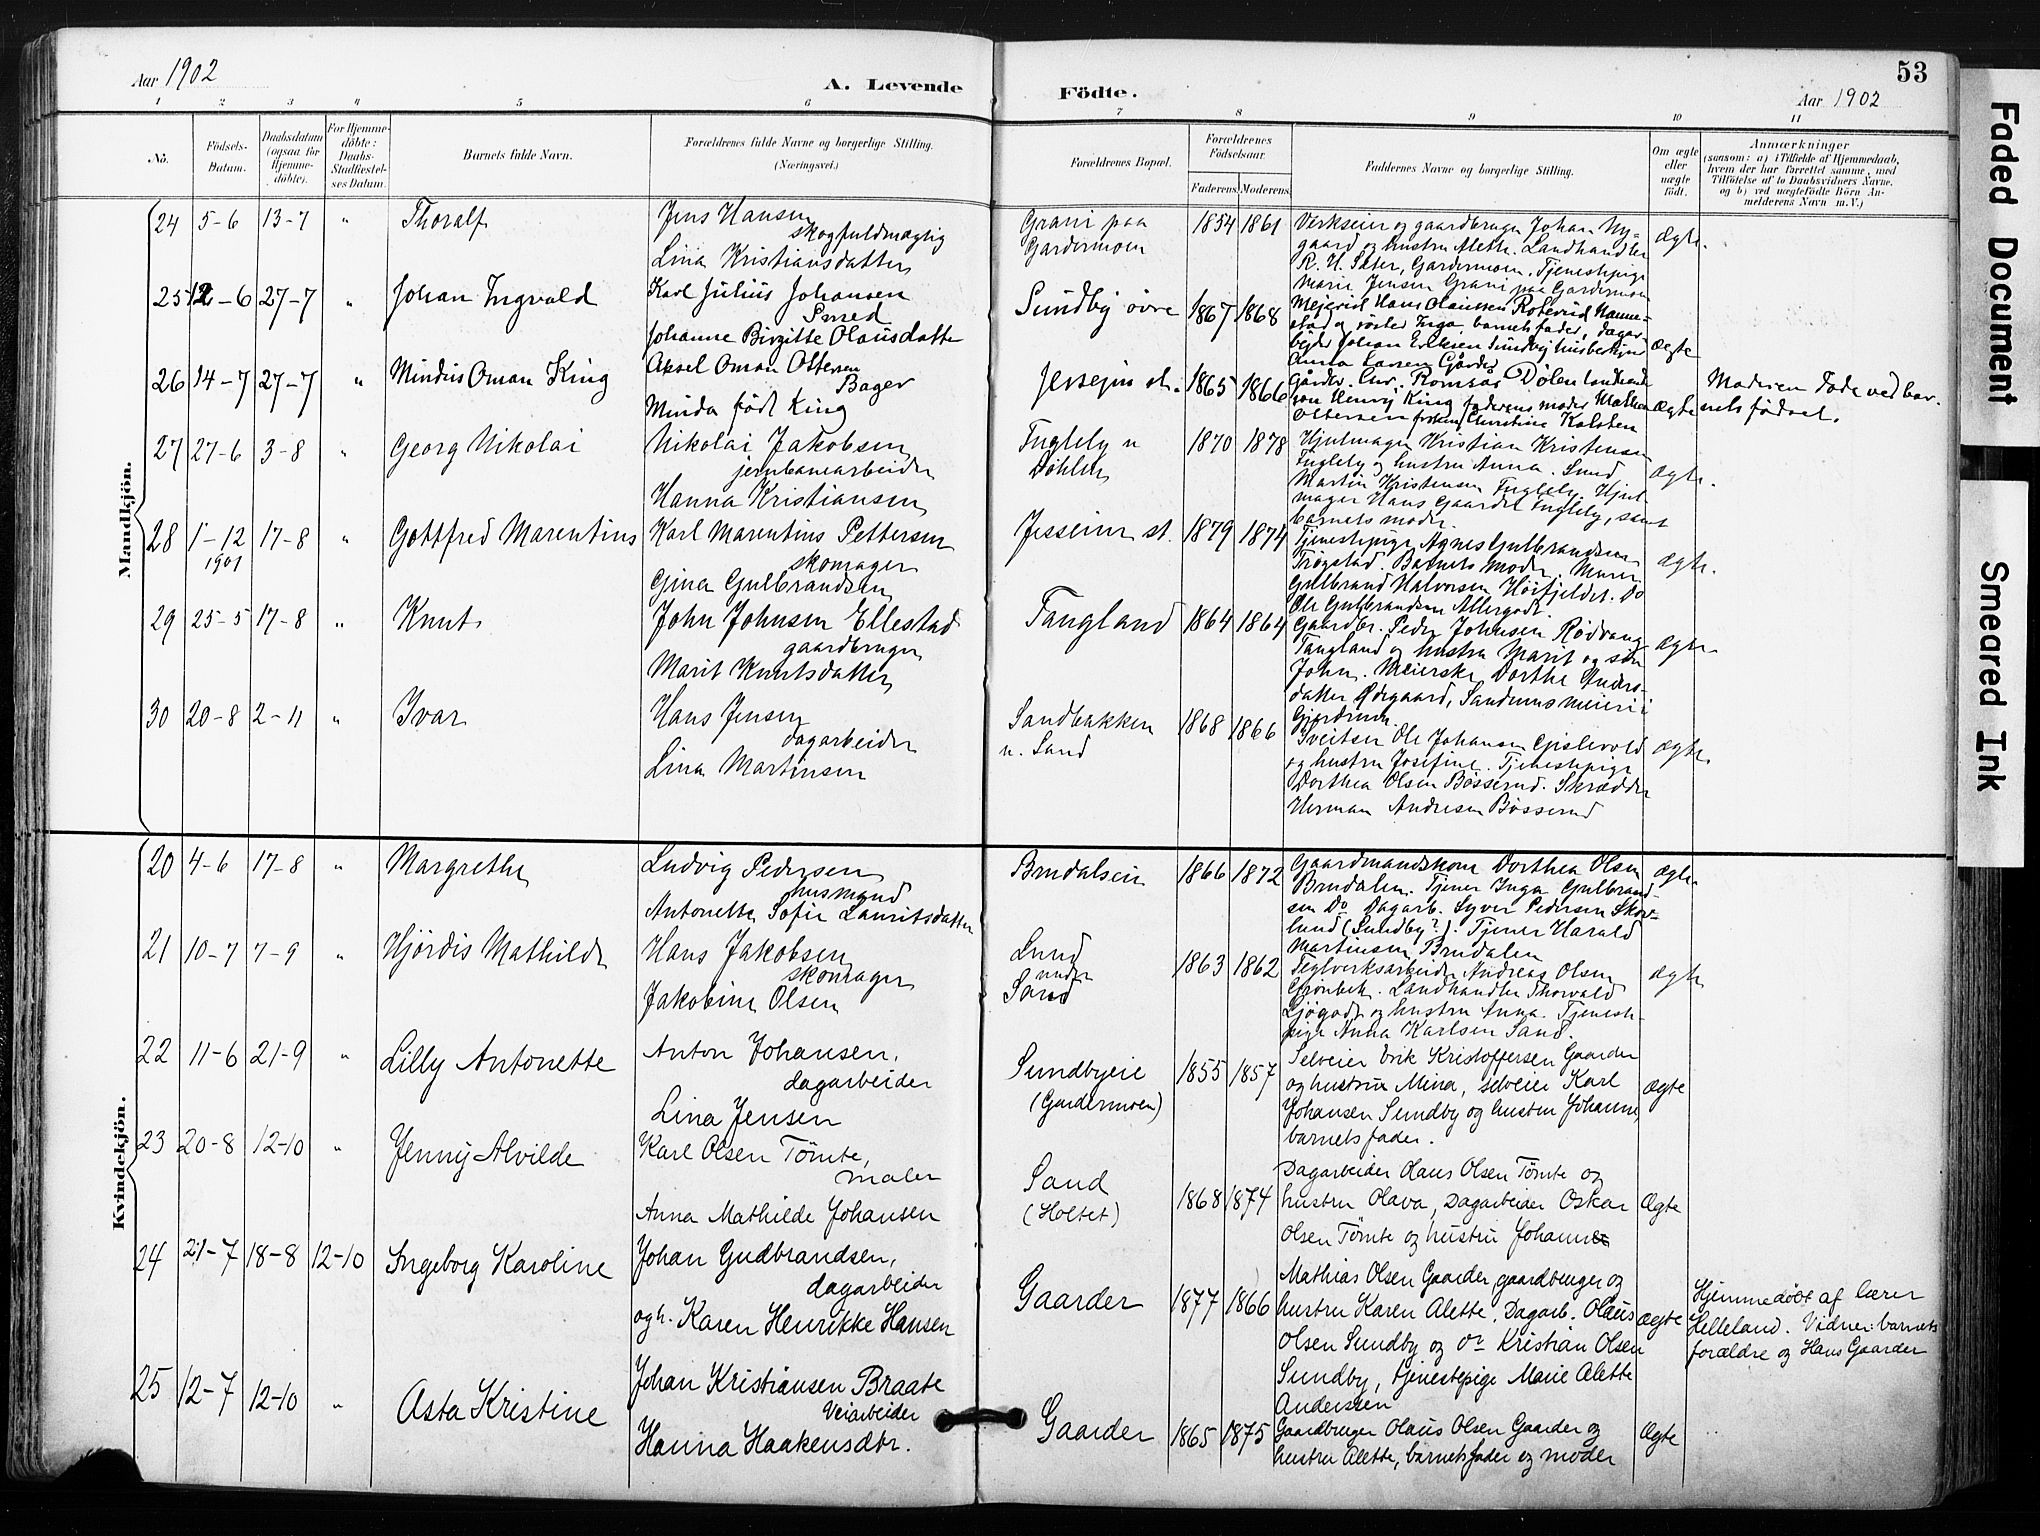 Aar 1902
A. Levende
Födte.
53
Aar 1902
1 2 3 4 5 6 7 8 9 10 11
No.
Födsels-
Datum.
Daabsdatum
(ogsaa for
Hjemme-
döbte).
For Hjemme-
döbte:
Daabs-
Stadfæstel-
ses Datum.
Barnets fulde Navn.
Forældrenes fulde Navne og borgerlige Stilling.
(Næringsvei.)
Forældrenes Bopæl.
Forældrenes
Födselsaar.
Faderens.
Moderens.
Faddernes Navne og borgerlige Stilling.
Om ægte
eller
uægte
födt.
Anmærkninger
(saasom: a) i Tilfælde af Hjemmedaab,
hvem der har forrettet samme, med
Tilföielse af to Daabsvidners Navne,
og b) ved uægtefödte Börn An-
melderens Navn m. V.)
Mandkjön.
24 5-6 13-7 „ Thoralf
Jens Hansen
skogfuldmægtig
Lina Kristiansdatter
Grani paa
Gardermoen
1854 1861
Verkseier og gaardbruger Johan Ny-
gaard og hustru Alette. Landhandler
R. H. Sæter, Gardermoen. Tjenestepige
Marie Jensen Grani paa Gardermoen
ægte.
25 12-6 27-7 „ Johan Ingvald
Karl Julius Johansen
Smed
Johanne Birgitte Olausdatter
Sundby øvre
1867 1868
Hans Olaussen
søster Inga, barnets fader, dagar-
beider Johan Eriksen Sundby
Anna Larsen Gårder
ægte
26 14-7 27-7 „ Mindus Oman King
Aksel Oman Ottersen
Bager
Minda født King
Jessejm st.
1865 1866
Henry King faderens moder
Ottersen frøken Christine Karlsten
ægte
Moderen døde ved bar-
nets fødsel.
27 27-6 3-8 „ Georg Nikolai
Nikolai Jakobsen
jernbanearbeider
Hanna Kristiansen
Fugleby u
Døhlen
1870 1878
Hjulmager Kristian Kristensen
Fugleby og hustru Anna. Smed
Martin Kristensen Fugleby. Hjul-
mager Hans Gaarder Fugleby, samt
barnets moder.
ægte.
28 1-12 1901 17-8 „ Gottfred Marentius
Karl Marentius Pettersen
skomager
Gina Gulbrandsen
Jesseim st.
1879 1874
Tjenestepige Agnes Gulbrandsen
Trøgstad. Barnets moder, Murer
Gulbrand Halvorsen Høifjeldet. Do
Ole Gulbrandsen Allergodt
ægte.
29 25-5 17-8 „ Knut
John Johnsen Ellestad
gaardbruger
Marit Knutsdatter
Tangland
1864 1864
Gaardbr. Peder Johnsen Rødvang
Tangland og hustru Marit og søn
John. Meierske Dorthe Anders-
datter Ødegaard, Sandnæs meieri i
Gjerdrum.
ægte
30 20-8 2-11 „ Ivar
Hans Jensen
dagarbeider
Lina Martinsen
Sandbakken
u. Sand
1868 1866
Sveitser Ole Johansen Gislevold
og hustru Josefine. Tjenestepige
Dorthea Olsen Bøsserud. Skrædder
Herman Andresen Bøsserud
ægte
Kvindekjön.
20 4-6 17-8 „ Margrethe
Ludvig Pedersen
husmand
Antonette Sofie Lauritsdatter
Brudalseie
1866 1872
Gaardmandskone Dorthea Olsen
Brudalen. Tjener Inga Gulbrand-
sen Do Dagarb. Syver Pedersen Skov-
lund (Sundby?). Tjener Harald
Martinsen Brudalen
ægte
21 10-7 7-9 „ Hjørdis Mathilde
Hans Jakobsen
skomager
Jakobine Olsen
Lund
under
Sand
1863 1862
Teglverksarbeider Andreas Olsen
Grønbek. Landhandler Thorvald
Ljøgodt og hustru Anna. Tjeneste-
pige Anna Karlsen Sand.
ægte
22 11-6 21-9 „ Lilly Antonette
Anton Johansen,
dagarbeider
Lina Jensen
Sundbyeie
(Gardermoen)
1855 1857
Selveier Erik Kristoffersen Gaarder
og hustru Mina, selveier Karl
Johansen Sundby og hustru Johanne,
barnets fader.
ægte
23 20-8 12-10 „ Jenny Alvilde
Karl Olsen Tømte,
maler
Anna Mathilde Johansen
Sand
(Holtet)
1868 1874
Dagarbeider Hans Olsen Tømte og
hustru Olava, Dagarbeider Oskar
Olsen Tømte og hustru Johanne
Ægte
24 21-7 18-8 12-10 Ingeborg Karoline
Johan Gudbrandsen,
dagarbeider
og h. Karen Henrikke Hansen
Gaarder
1877 1866
Mathias Olsen Gaarder, gaardbruger og
hustru Karen Alette, Dagarb. Olaus
Olsen Sundby og do Kristian Olsen
Sundby, tjenestepige Marie Alette
Andersen
ægte
Hjemmedøbt af lærer
Helleland. Vidner: barnets
forældre og Hans Gaarder
25 12-7 12-10 „ Asta Kristine
Johan Kristiansen Braate
Veiarbeider
Hanna Haakensdtr.
Gaarder
1865 1875
Gaardbruger Olaus Olsen Gaarder og
hustru Alette, barnets fader og moder
Ægte
Faded Document
Smeared Ink